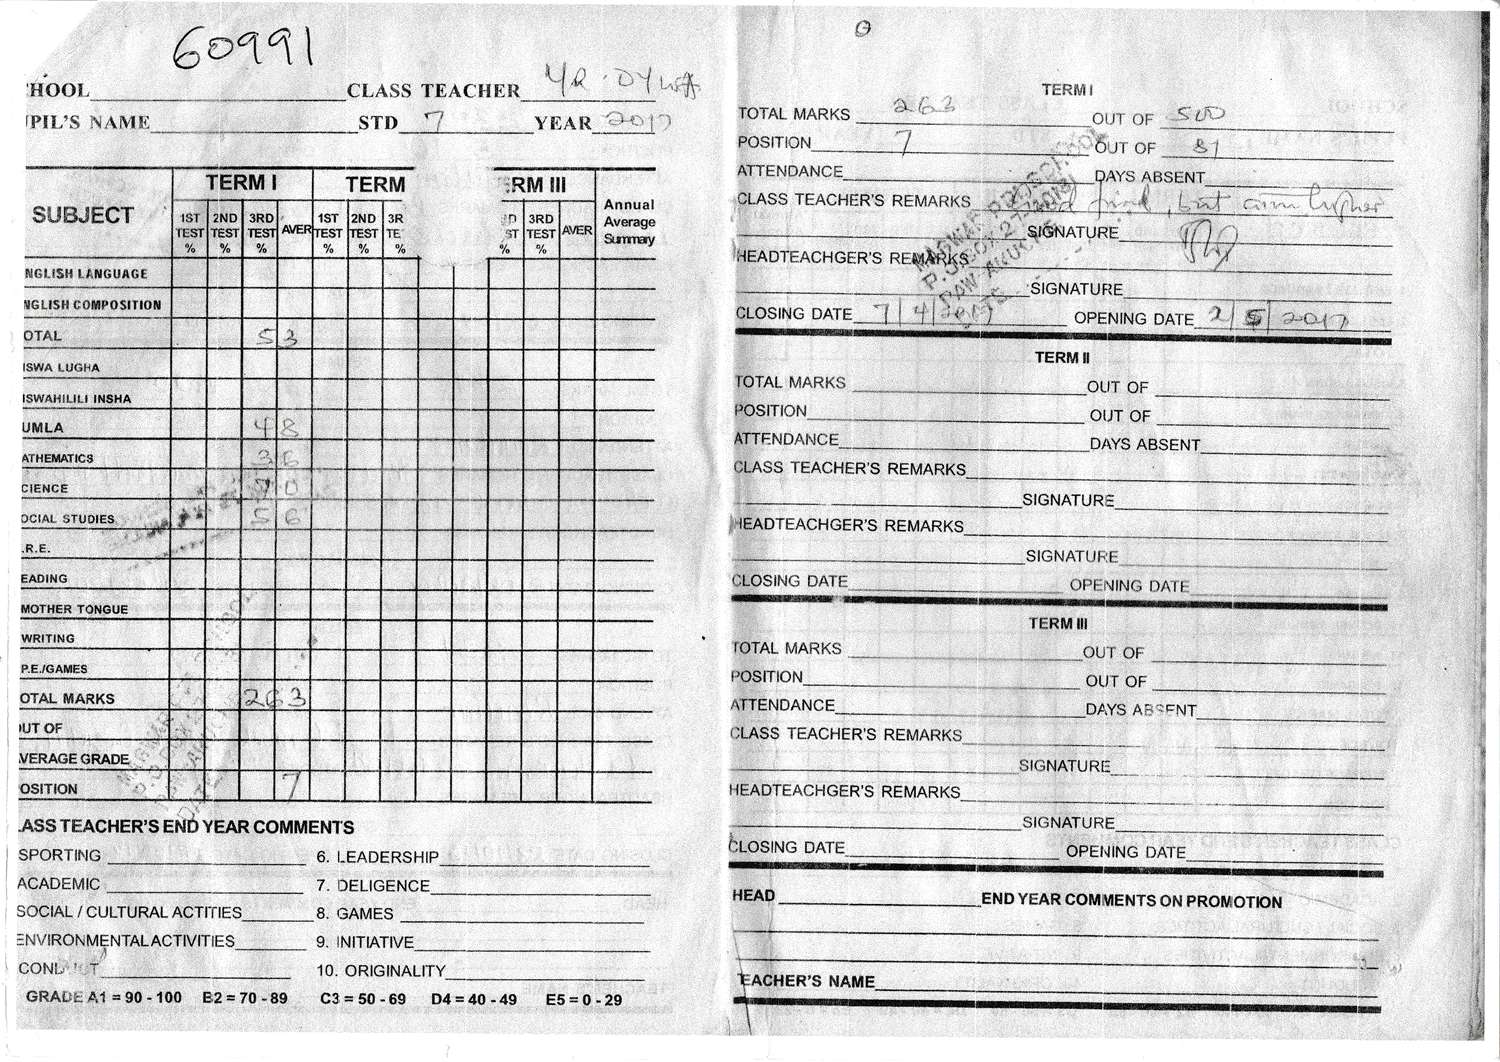 60991
HOOL CLASS TEACHER MR. OYWA
PIL'S NAME STD 7 YEAR 2017
SUBJECT TERM I TERM RM III Annual Average Summary
1ST TEST % 2ND TEST % 3RD TEST % AVER 1ST TEST % 2ND TEST % 3R TE % D ST % 3RD TEST % AVER
NGLISH LANGUAGE
NGLISH COMPOSITION
OTAL 53
ISWA LUGHA
ISWAHILILI INSHA
UMLA 48
ATHEMATICS 36
CIENCE 70
OCIAL STUDIES 56
.R.E.
EADING
MOTHER TONGUE
WRITING
P.E./GAMES
OTAL MARKS 263
OUT OF
VERAGE GRADE
OSITION 7
ASS TEACHER'S END YEAR COMMENTS
SPORTING 6. LEADERSHIP
ACADEMIC 7. DELIGENCE
SOCIAL / CULTURAL ACTITIES 8. GAMES
ENVIRONMENTAL ACTIVITIES 9. INITIATIVE
CONDUCT 10. ORIGINALITY
GRADE A1 = 90 - 100 B2 = 70 - 89 C3 = 50 - 69 D4 = 40 - 49 E5 = 0 - 29
TERM I
TOTAL MARKS 263 OUT OF 500
POSITION 7 OUT OF 81
ATTENDANCE DAYS ABSENT
CLASS TEACHER'S REMARKS , but aim higher
SIGNATURE
HEADTEACHGER'S REMARKS
SIGNATURE
CLOSING DATE 7/4/2017 OPENING DATE 2/5/2017
TERM II
TOTAL MARKS OUT OF
POSITION OUT OF
ATTENDANCE DAYS ABSENT
CLASS TEACHER'S REMARKS
SIGNATURE
HEADTEACHGER'S REMARKS
SIGNATURE
CLOSING DATE OPENING DATE
TERM III
TOTAL MARKS OUT OF
POSITION OUT OF
ATTENDANCE DAYS ABSENT
CLASS TEACHER'S REMARKS
SIGNATURE
HEADTEACHGER'S REMARKS
SIGNATURE
CLOSING DATE OPENING DATE
HEAD END YEAR COMMENTS ON PROMOTION
TEACHER'S NAME